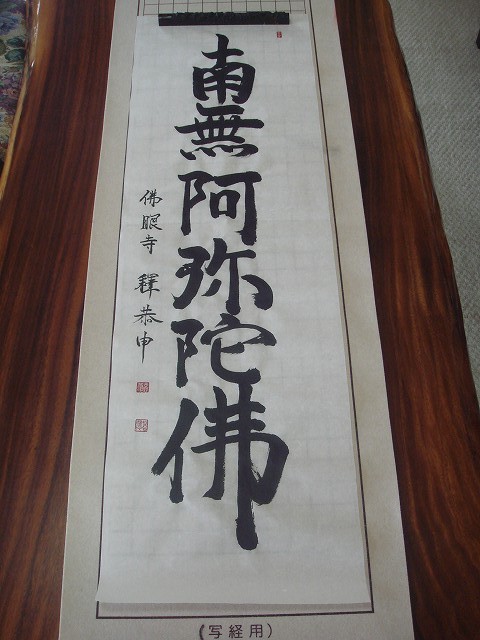 南無阿弥陀佛
佛眼寺 釋恭申
(写経用)